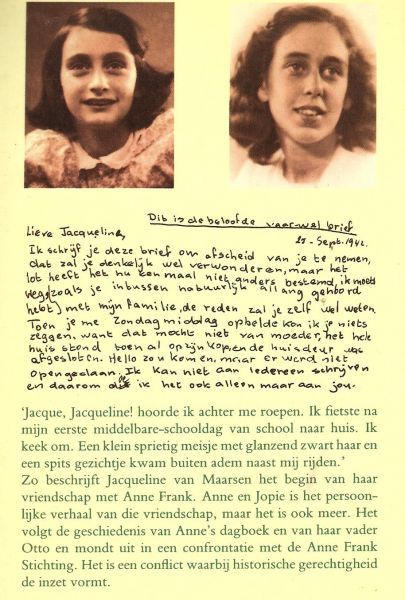 Dit is de beloofde vaar-wel brief
Lieve Jacqueline,
25-Sept. 1942.
Ik schrijf je deze brief om afscheid van je te nemen,
dat zal je denkelijk wel verwonderen, maar het
lot heeft het nu eenmaal niet anders bestemd, ik moet
weg (zoals je intussen natuurlijk allang gehoord
hebt) met mijn familie, de reden zal je zelf wel weten.
Toen je me Zondagmiddag opbelde kon ik je niets
zeggen, want dat mocht niet van moeder, het hele
huis stond toen al op z'n kop en de huisdeur was
afgesloten. Hello zou komen, maar er werd niet
opengedaan. Ik kan niet aan iedereen schrijven
en daarom ik het ook alleen maar aan jou.
'Jacque, Jacqueline! hoorde ik achter me roepen. Ik fietste na
mijn eerste middelbare-schooldag van school naar huis. Ik
keek om. Een klein sprietig meisje met glanzend zwart haar en
een spits gezichtje kwam buiten adem naast mij rijden.'
Zo beschrijft Jacqueline van Maarsen het begin van haar
vriendschap met Anne Frank. Anne en Jopie is het persoon-
lijke verhaal van die vriendschap, maar het is ook meer. Het
volgt de geschiedenis van Anne's dagboek en van haar vader
Otto en mondt uit in een confrontatie met de Anne Frank
Stichting. Het is een conflict waarbij historische gerechtigheid
de inzet vormt.